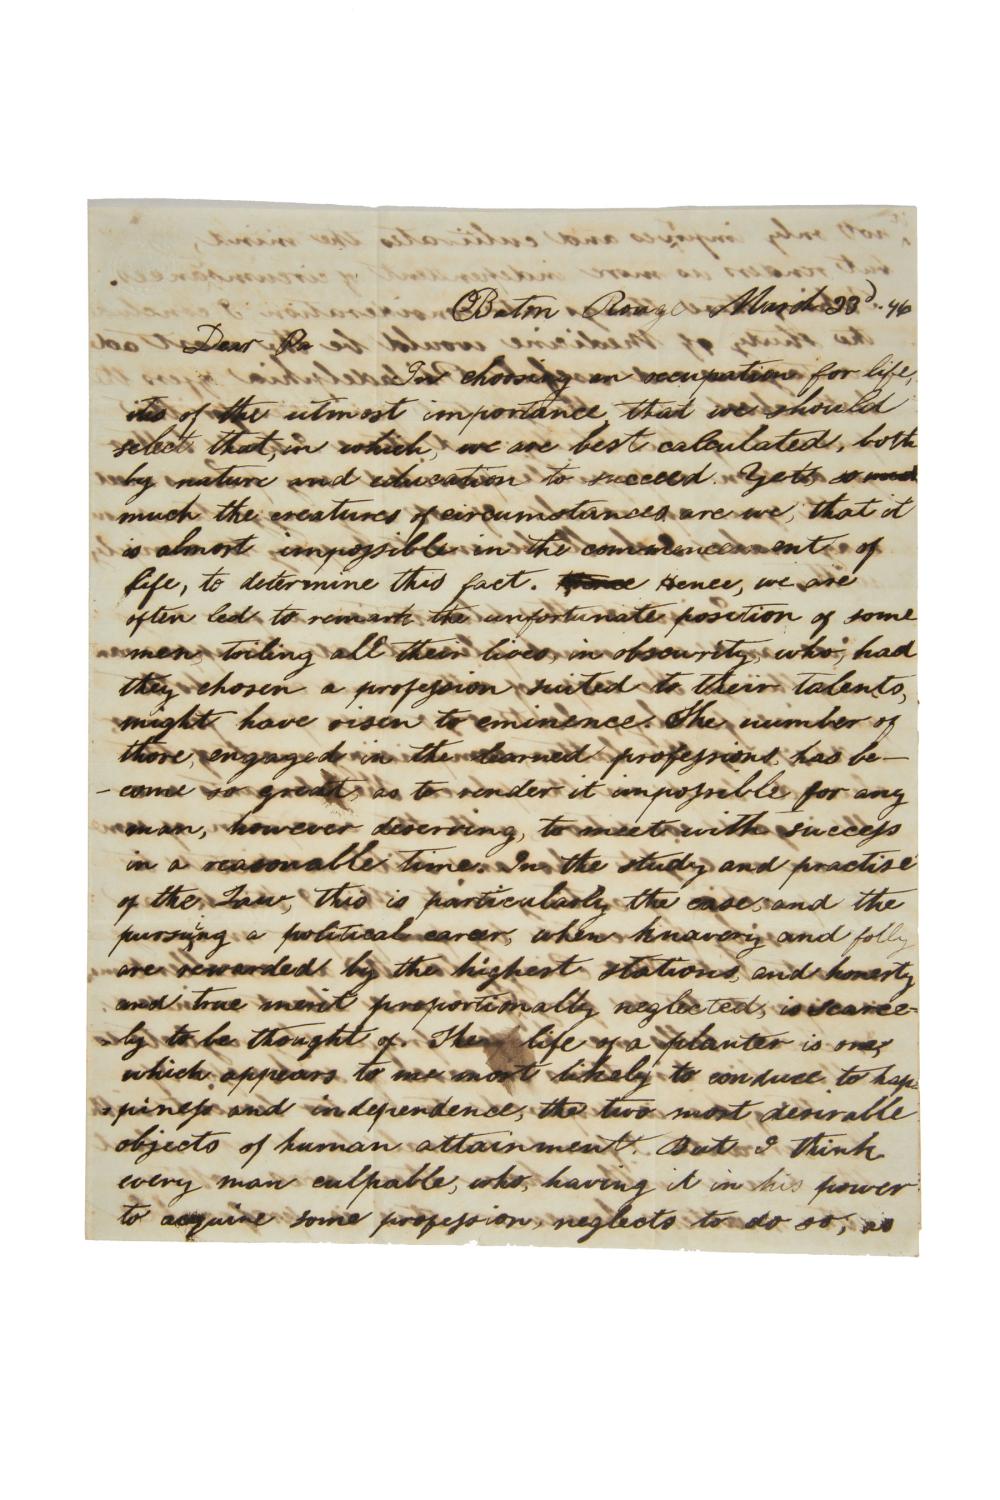 Baton Rouge March 23d. 46
Dear Pa
In choosing an occupation for life,
itis of the utmost importance, that we should
select that, in which, we are best calculated, both
by nature and education to succeed. Yet, so
much the creatures of circumstances, are we, that it
is almost impossible in the commencement of
life, to determine this fact. Hence, we are
often led to remark the unfortunate position of some
men, toiling all their lives, in obscurity, who, had
they chosen a profession suited to their talents,
might have risen to eminence. The number of
those, engaged in the learned professions, has be-
-come so great, as to render it impossible for any
man, however deserving, to meet with success
in a reasonable time. In the study and practise
of the Law, this is particularly the case, and the
pursuing a political career, when knavery and folly
are rewarded by the highest stations, and honesty
and true merit proportionally neglected, is scarce-
-ly to be thought of. The life of a planter is one,
which appears to me most likely to conduce to hap-
-piness and independence, the two most desirable
objects of human attainment. But I think
every man culpable, who, having it in his power
to acquire some profession, neglects to do so, as